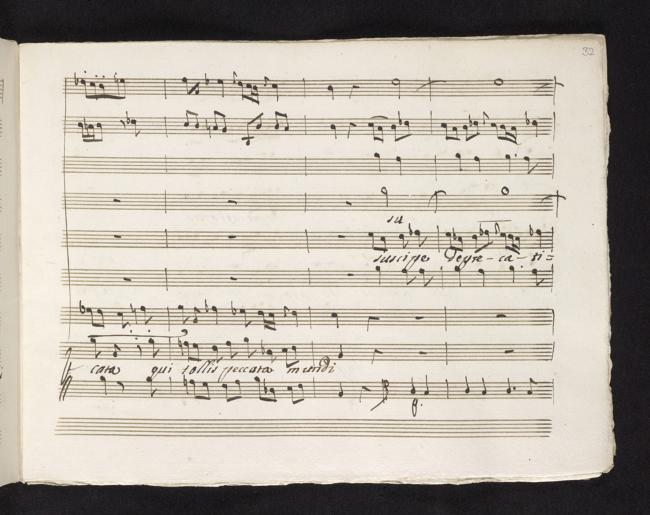 32
su
suscipe depre - ca - ti =
cata qui tollis peccata mundi
p.